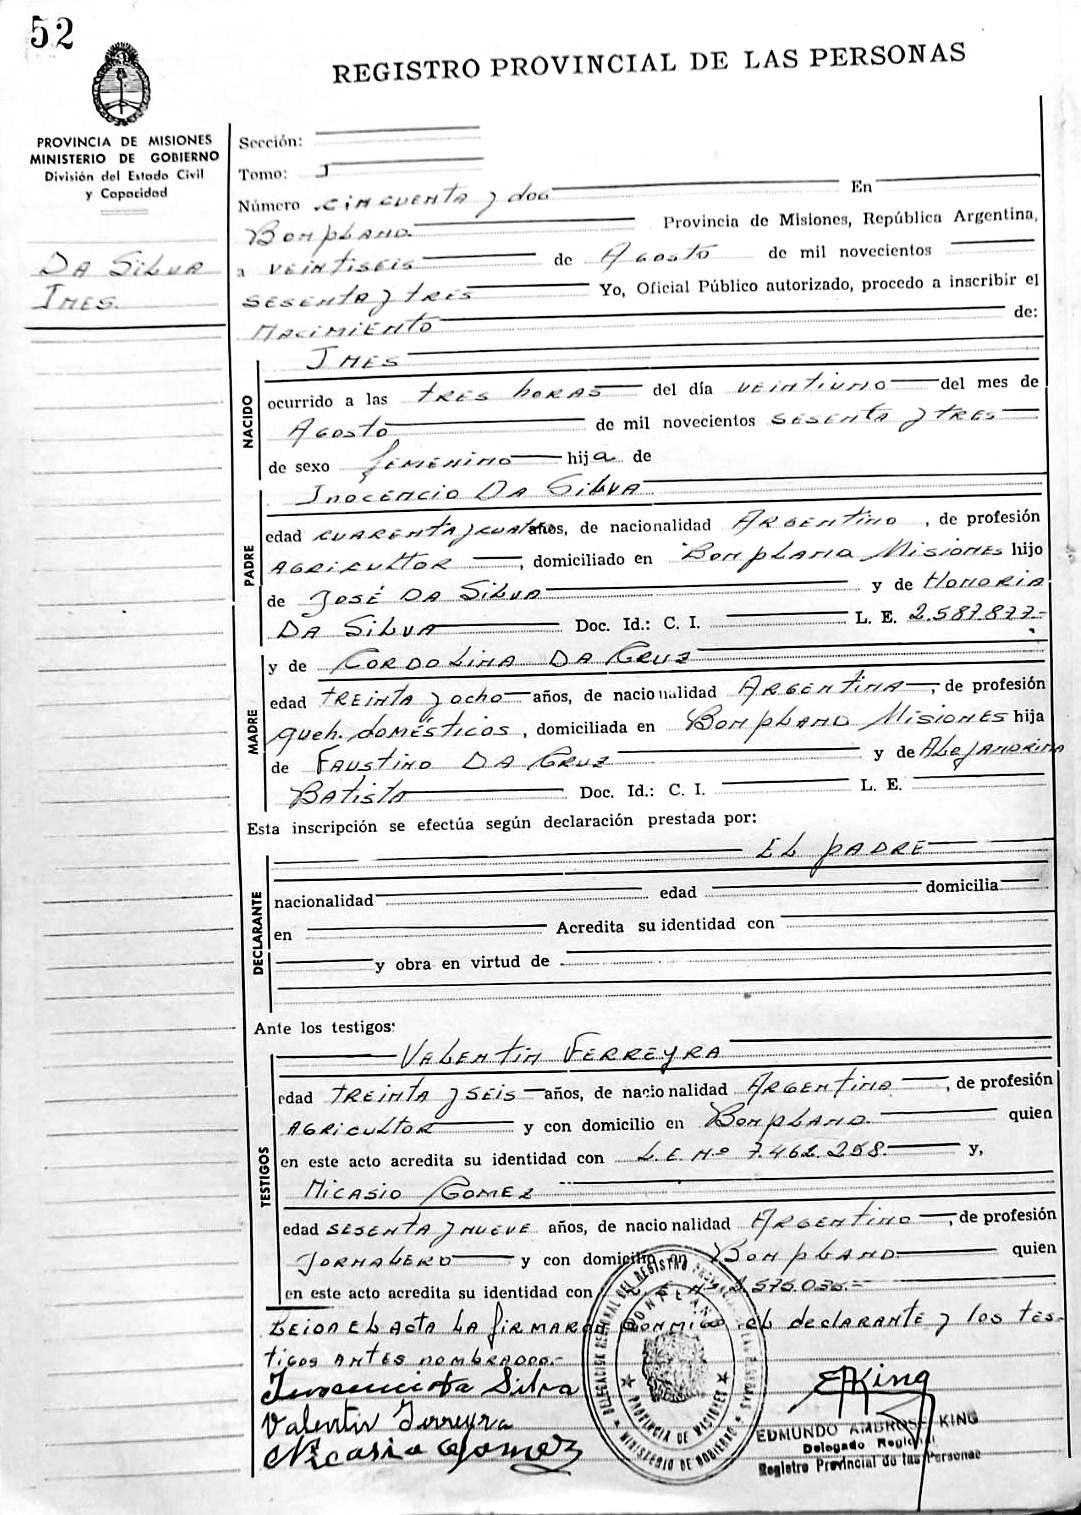 52
REGISTRO PROVINCIAL DE LAS PERSONAS
PROVINCIA DE MISIONES
MINISTERIO DE GOBIERNO
División del Estado Civil
y Capacidad
DA SILVA
INES.
Sección:
Tomo: I
Número CINCUENTA y dos En
BONPLAND. Provincia de Misiones, República Argentina,
a VEINTISEIS de AGOSTO de mil novecientos
SESENTA y TRES Yo, Oficial Público autorizado, procedo a inscribir el
NACIMIENTO de:
NACIDO
INES
ocurrido a las TRES horas del día VEINTIUNO del mes de
AGOSTO de mil novecientos SESENTA y TRES
de sexo femenino hija de
PADRE
INOCENCIO DA SILVA
edad CUARENTA y CUATRO años, de nacionalidad ARGENTINO, de profesión
AGRICULTOR, domiciliado en BONPLAND MISIONES hijo
de JOSÉ DA SILVA y de HONORIA
DA SILVA Doc. Id.: C. I. L. E. 2.587.877-
MADRE
y de CORDOLINA DA CRUZ
edad TREINTA y ocho años, de nacionalidad ARGENTINA, de profesión
queh. domésticos, domiciliada en BONPLAND MISIONES hija
de FAUSTINO DA CRUZ y de Alejandrina
BATISTA Doc. Id.: C. I. L. E.
Esta inscripción se efectúa según declaración prestada por:
DECLARANTE
EL PADRE
nacionalidad edad domicilia
en Acredita su identidad con
y obra en virtud de
Ante los testigos:
TESTIGOS
VALENTIN FERREYRA
edad TREINTA y SEIS años, de nacionalidad ARGENTINA, de profesión
AGRICULTOR y con domicilio en BONPLAND. quien
en este acto acredita su identidad con L.E. Nº 7.462.258. y,
NICASIO GOMEZ
edad SESENTA y NUEVE años, de nacionalidad ARGENTINO, de profesión
JORNALERO y con domicilio en BONPLAND quien
en este acto acredita su identidad con 2.575.036.=
LEIDA EL ACTA LA firmaron conmigo el declarante y los tes-
tigos ANTES nombrados.-
Inocencio da Silva
Valentin Ferreyra
Nicasio Gomez
DELEGACION REGIONAL DEL REGISTRO PROVINCIAL DE LAS PERSONAS
BONPLAND
PROVINCIA DE MISIONES
MINISTERIO DE GOBIERNO
EAKing
EDMUNDO AMBROSE KING
Delegado Regional
Registro Provincial de las Personas